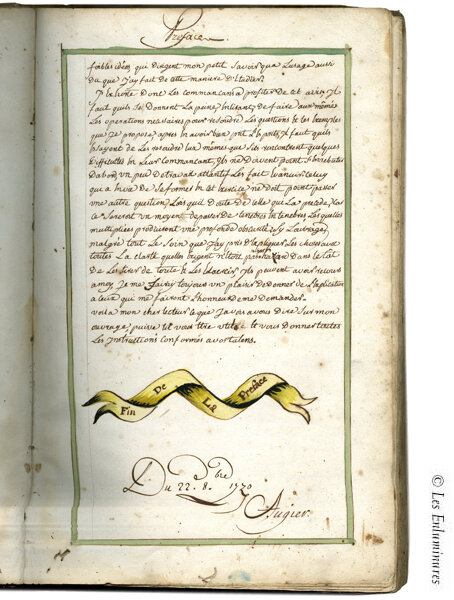 Preface
foibles idées qui dirigent mon petit savoir que Lusage aussi
du que J'ay fait de cette maniere d'Etudier.
J'Exhorte Dont Les Commancans a profiter de cet avis, Il
faut quils se Donnent La peine En lisant, de faire eux mêmes
Les operations necessaires pour resoudre Les questions & les Exemples
que Je propose, apres En avoir bien prit L'Esprit, Il faut quils
Essayent de Les resoudre Eux mêmes que S'ils rencontrent quelques
difficultés En Leur Commancant, Ils ne Doivent point S'en rebuter
Dabord un peu de travail attantif Les fait Evanouir Celuy
qui a Envie de Se former En cet Exercice ne doit point passer
une autre question, Lors quil doute de celle qui La precede, Car
ce Seroit un moyen de passer de tenebres En tenebres Les quelles
multipliées produiroit une profonde obscurité, Sy La
malgré tout Le Soin que J'ay pris d'Expliquer Les choses avec
toutes La clarté quelles Exigent n'Etoit pas dans Le Cas
De Les tirer de toute & Les Eclaircir, Ils peuvent avoir recours
a moy Je me fairay toujours un plaisir de donner de L'aplication
a Ceux qui me fairont L'honneur de me demander.
voila mon cher Lecteur ce que J'avois a vous Dire Sur mon
ouvrage, puisse til vous Etre utile & vous Donner toutes
Les Instructions conformes a vos talens.
Fin De La Preface
Du 22. 8.bre 1770
Augier.
© Les Enluminures